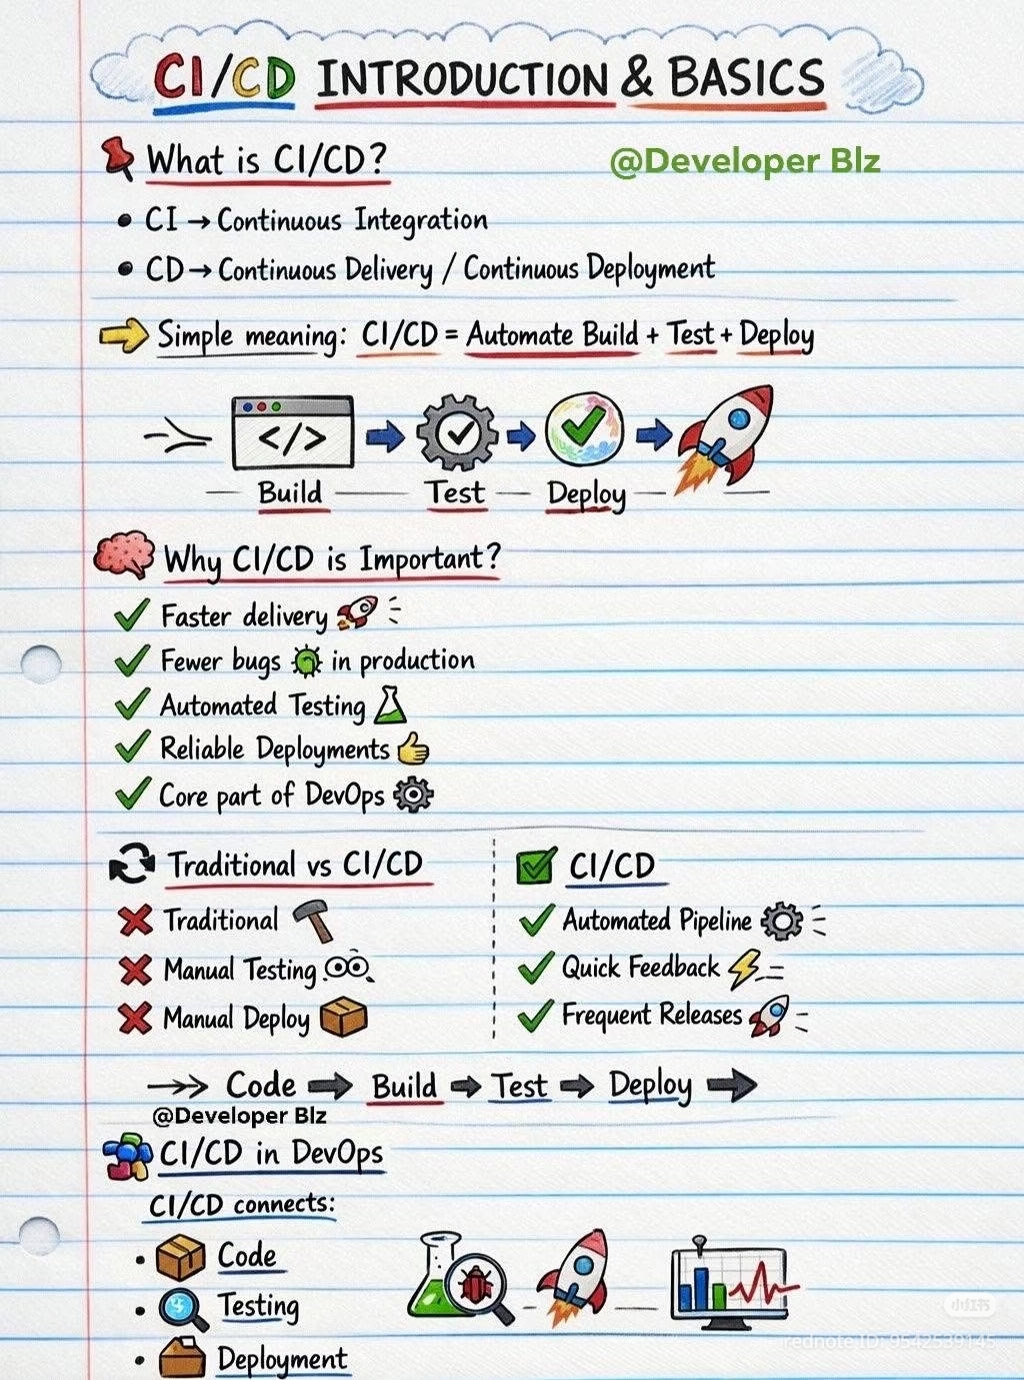 CI/CD INTRODUCTION & BASICS
What is CI/CD?
@Developer Blz
• CI → Continuous Integration
• CD → Continuous Delivery / Continuous Deployment
Simple meaning: CI/CD = Automate Build + Test + Deploy
</>
Build
Test
Deploy
Why CI/CD is Important?
Faster delivery
Fewer bugs in production
Automated Testing
Reliable Deployments
Core part of DevOps
Traditional vs CI/CD
Traditional
Manual Testing
Manual Deploy
CI/CD
Automated Pipeline
Quick Feedback
Frequent Releases
Code → Build → Test → Deploy →
@Developer Blz
CI/CD in DevOps
CI/CD connects:
• Code
• Testing
• Deployment
小红书
rednote ID: 9542539145